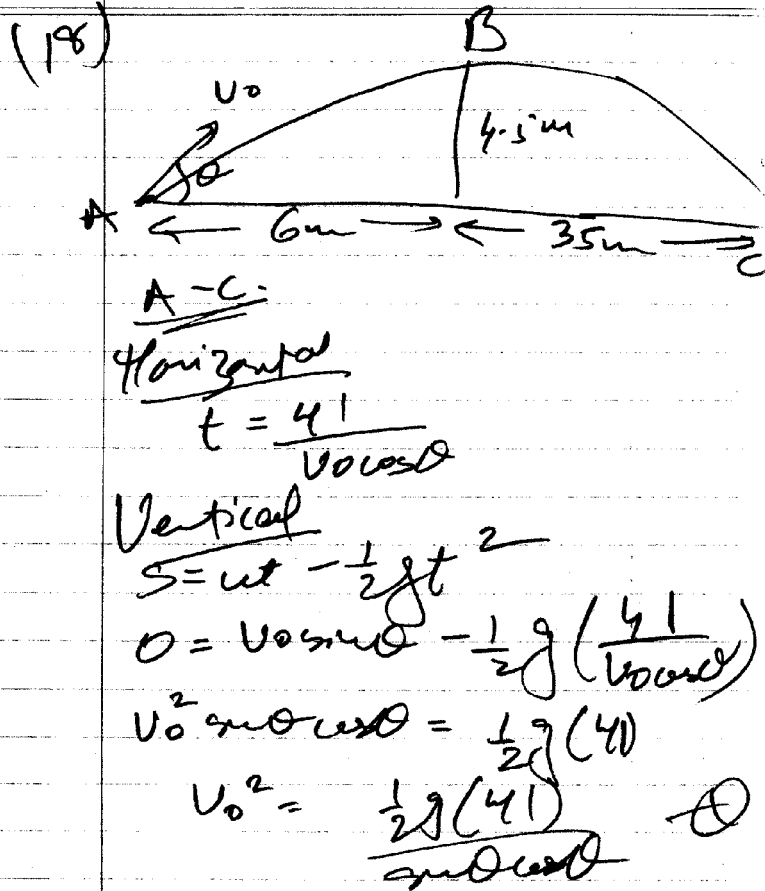 (18)
B
v0
4.5m
θ
A
6m
35m
C
A-C.
Horizontal
t = 41 / v0cosθ
Vertical
S = ut - 1/2 gt^2
0 = v0sinθ - 1/2 g (41 / v0cosθ)
v0^2 sinθ cosθ = 1/2 g (41)
v0^2 = 1/2 g (41) / sinθ cosθ